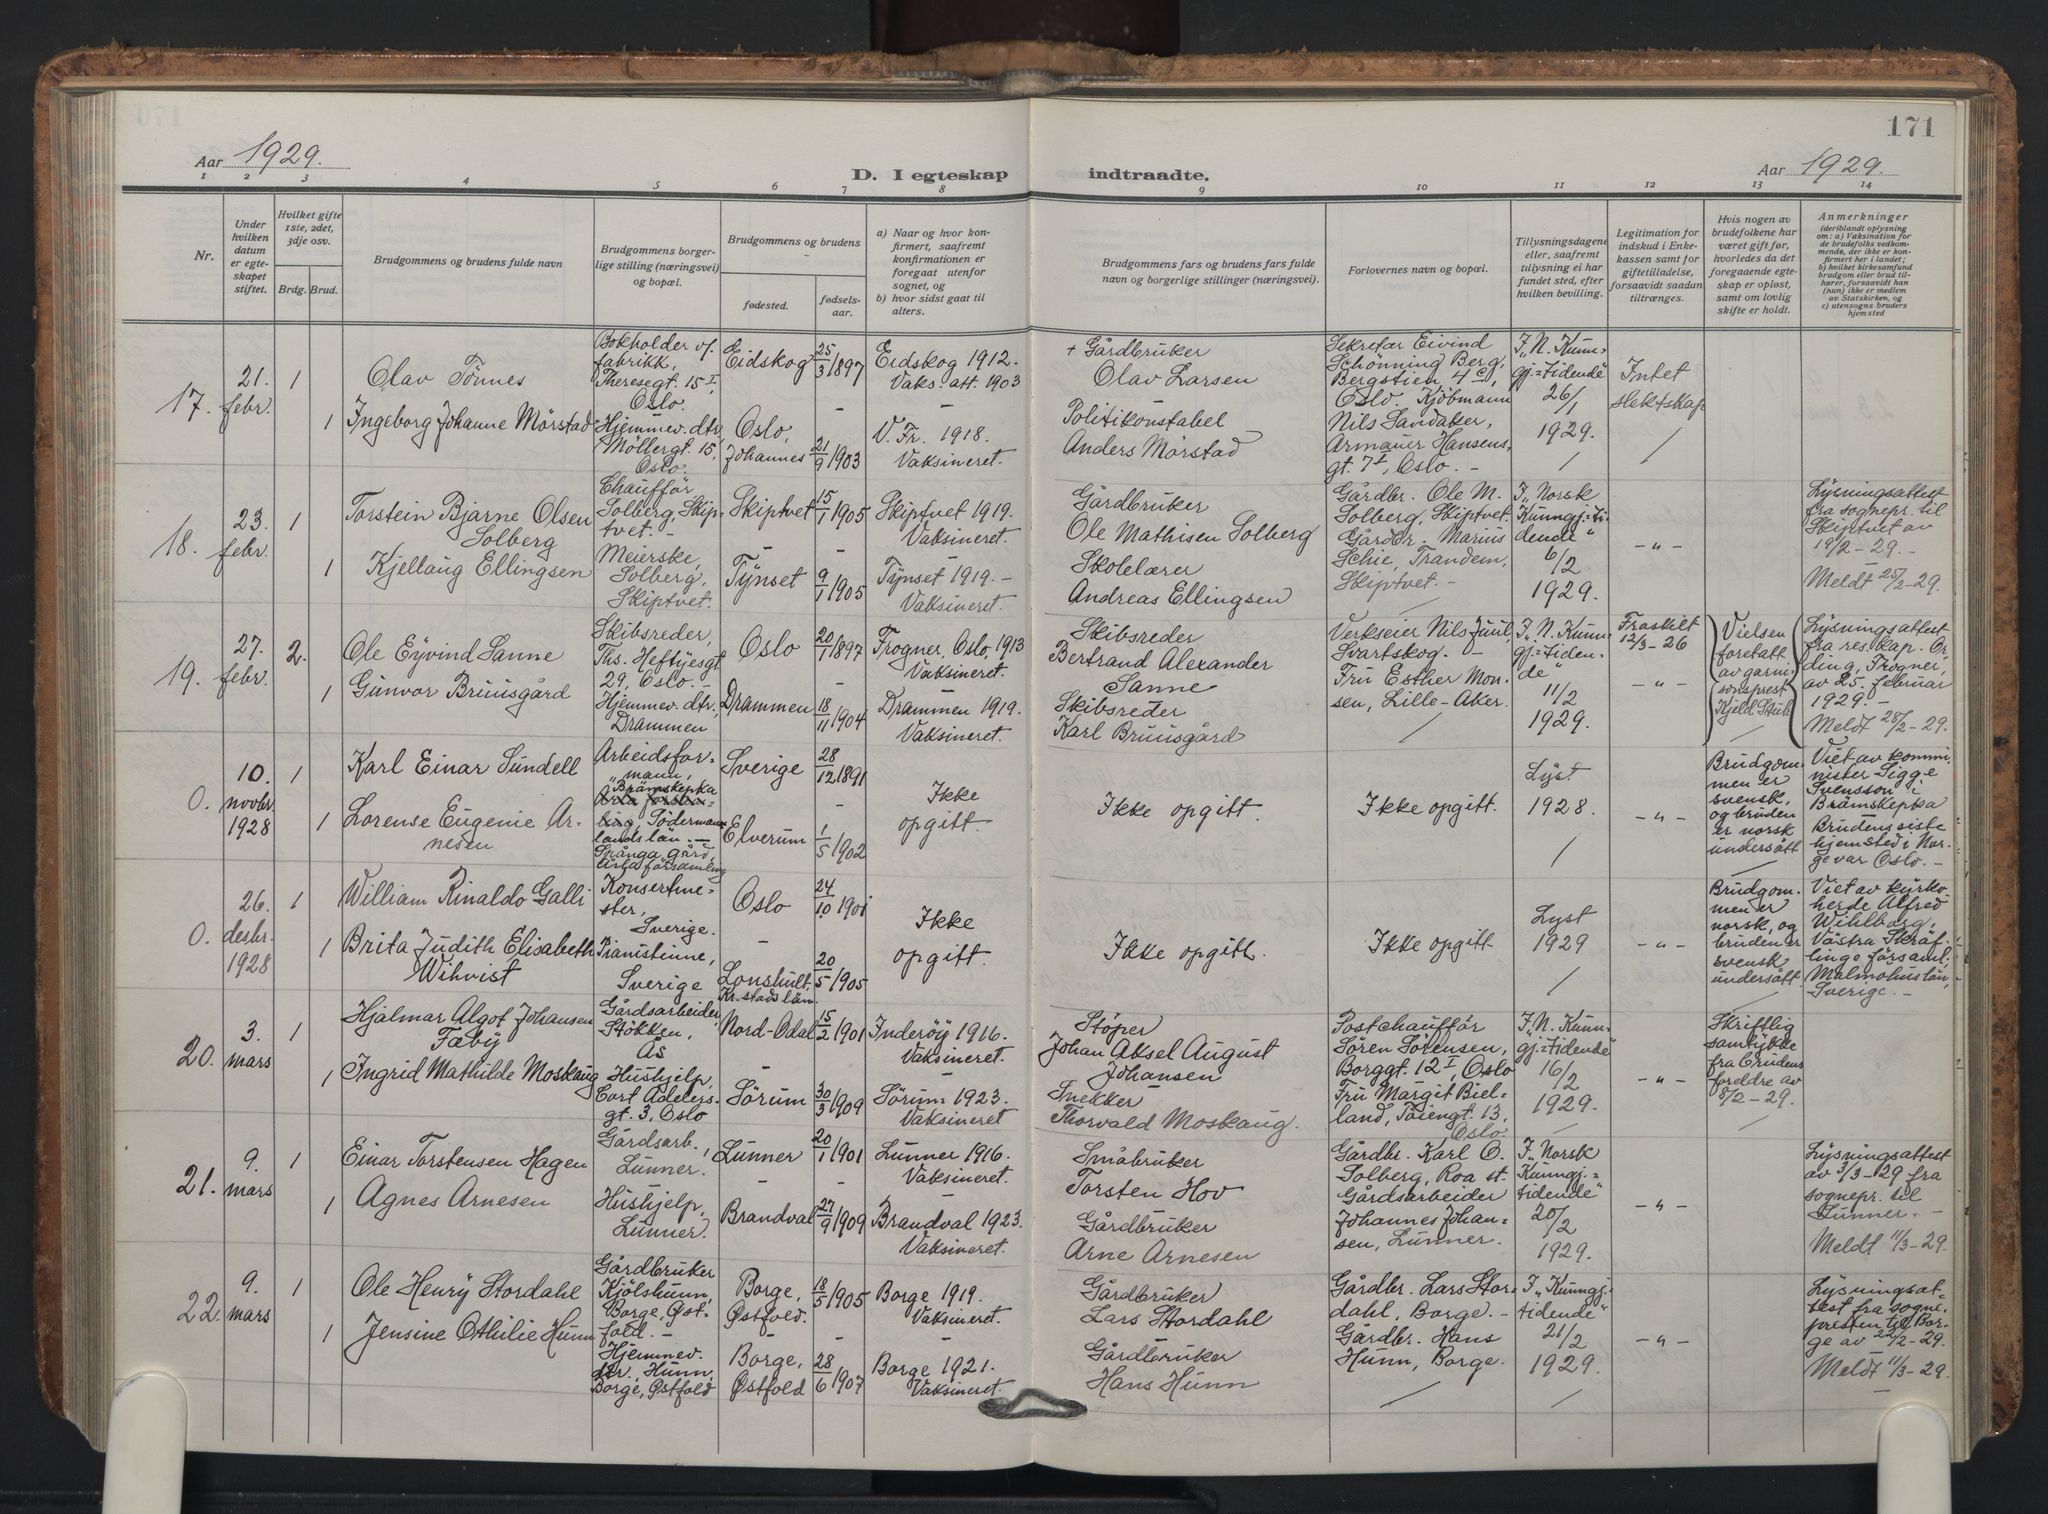 171
Aar 1929.
D. I egteskap indtraadte.
Aar 1929.
1 2 3 4 5 6 7 8 9 10 11 12 13 14
Nr.
Under hvilken datum er egteskapet stiftet.
Hvilket gifte 1ste, 2det, 3dje osv.
Brdg. Brud.
Brudgommens og brudens fulde navn
Brudgommens borgerlige stilling (næringsvei) og bopæl.
Brudgommens og brudens
fødested.
fødselsaar.
a) Naar og hvor konfirmert, saafremt konfirmationen er foregaat utenfor sognet, og
b) hvor sidst gaat til alters.
Brudgommens fars og brudens fars fulde navn og borgerlige stillinger (næringsvei).
Forlovernes navn og bopæl.
Tillysningsdagene eller, saafremt tillysning ei har fundet sted, efter hvilken bevilling.
Legitimation for indskud i Enkekassen samt for giftetilladelse, forsaavidt saadan tiltrænges.
Hvis nogen av brudefolkene har været gift før, hvorledes da det foregaaende egteskap er opløst, samt om lovlig skifte er holdt.
Anmerkninger
(deriblandt oplysning om: a) Vaksination for de brudefolks vedkommende, der ikke er konfirmert her i landet; b) hvilket kirkesamfund brudgom eller brud tilhører, forsaavidt han (hun) ikke er medlem av Statskirken, og c) utensogns bruders hjemsted
17.
21. febr.
1
Olav Tönnes
Bokholder v/ fabrikk, Theresegt. 15 I, Oslo.
Eidskog
25/3 1897
Eidskog 1912.
Vaks. att. 1903
+ Gårdbruker
Olav Larsen
1
Ingeborg Johanne Mörstad
Hjemmev. dtr, Möllergt. 15, Oslo.
Oslo, Johannes
21/9 1903
V. Fr. 1918.
Vaksineret.
Politikonstabel
Anders Mörstad
Sekretær Eivind
Schönning Berg,
Bergstien 4 c),
Oslo. Kjöbmann
Nils Sandaker,
Armauer Hansens
gt. 7 I, Oslo. -
I „N. Kunn=
gj.=tidende“
26/1
1929.
Intet
slektskap
18.
23. febr.
1
Torstein Bjarne Olsen
Solberg
Chaufför,
Solberg, Skip-
tvet. -
Skiptvet
15/1 1905
Skiptvet 1919.
Vaksineret.
Gårdbruker
Ole Mathisen Solberg
1
Kjellaug Ellingsen
Meierske,
Solberg,
Skiptvet.
Tynset
9/1 1905
Tynset 1919. -
Vaksineret.
Skolelærer
Andreas Ellingsen
Gårdbr. Ole M.
Solberg, Skiptvet.
Gårdbr. Marius
Schie, Trandem,
Skiptvet. -
I „Norsk
Kunngj.=ti-
dende“
6/2
1929.
- „ -
Lysningsattest
fra sognepr. til
Skiptvet av
19/2 - 29. -
Meldt 25/2 - 29.
19.
27. febr.
2.
Ole Eyvind Sanne
Skibsreder,
Ths. Heftyesgt
29, Oslo. -
Oslo
20/1 1897
Frogner, Oslo, 1913
Vaksineret.
Skibsreder
Bertrand Alexander
Sanne
1
Gunvor Bruusgård
Hjemmev. dtr,
Drammen
Drammen
18/11 1904
Drammen 1919.
Vaksineret.
Skibsreder
Karl Bruusgård
Verkseier Nils Juul,
Svartskog. -
Fru Esther Mon-
sen, Lille-Aker.
I „N. Kunn-
gj.=tiden-
de“
11/2
1929.
Fraskilt
12/3 - 26
- „ -
Vielsen
foretatt
av garni-
sonsprest
Kjeld Stub
Lysningsattest
fra res. kap. Or-
ding, Frogner,
av 25. februar
1929. -
Meldt 28/2 - 29.
0.
10. novbr. 1928
1
Karl Einar Sundell
Arbeidsfor-
mann,
Brämskepka
Södermann-
lands län. -
Spånga gård,
Årla församling
Sverige
28/12 1891
1
Lorense Eugenie Ar-
nesen
Elverum
1/5 1902
Ikke
opgitt.
Ikke opgitt.
Ikke opgitt.
Lyst
1928.
- „ -
Brudgom-
men er
svensk,
og bruden
er norsk
undersått
Viet av kommi-
nister Sigge
Svensson i
Brämskepka
Brudens siste
hjemsted i Nor-
ge var Oslo. -
0.
26. desbr. 1928
1
William Rinaldo Galli
Konsertme-
ster,
Sverige.
Oslo
24/10 1901
1
Brita Judith Elisabeth
Wihvist
Pianistinne,
Sverige
Lonshult,
Kr. stads län.
20/5 1905
Ikke
opgitt.
Ikke opgitt.
Ikke opgitt.
Lyst
1929
- „ -
Brudgom-
men er
norsk, og
bruden er
svensk
undersått.
Viet av kyrko-
herde Alfred
Wihlborg,
Västra Skräf-
linge församl.
Malmöhus län,
Sverige. -
20.
3. mars
1
Hjalmar Algot Johansen
Fæby
Gårdsarbeider,
Stökken,
Ås
Nord-Odal
15/2 1901
Inderöy 1916.
Vaksineret.
Stöper
Johan Aksel August
Johansen
1
Ingrid Mathilde Moskaug
Hushjelp,
Cort Adelers-
gt. 3, Oslo
Sörum
30/3 1909
Sörum 1923.
Vaksineret
Snekker
Thorvald Moskaug.
Postchaufför
Sören Sörensen,
Borggt. 12 I, Oslo
Fru Margit Biel-
land, Töiengt. 13,
Oslo.
I „N. Kunn-
gj.=tidende“
16/2
1929.
- „ -
Skriftlig
samtykke
fra brudens
foreldre av
8/2 - 29.
21.
9. mars
1
Einar Torstensen Hagen
Gårdsarb.,
Lunner.
Lunner
20/1 1901
Lunner 1916.
Vaksineret.
Småbruker
Torsten Hov
1
Agnes Arnesen
Hushjelp,
Lunner.
Brandval
27/9 1909
Brandval 1923.
Vaksineret.
Gårdbruker
Arne Arnesen
Gårdbr. Karl O.
Solberg, Roa st.
Gårdsarbeider
Johannes Johan=
sen, Lunner.
I „Norsk
Kunngj.=
tidende“
20/2
1929.
- „ -
Lysningsattest
av 3/3 - 29 fra
sognepr. til
Lunner. -
Meldt 11/3 - 29.
22.
9. mars
1
Ole Henry Stordahl
Gårdbruker
Kjölshunn,
Borge, Øst-
fold. -
Borge,
Østfold.
18/5 1905
Borge 1919.
Vaksineret.
Gårdbruker
Lars Stordahl
1
Jensine Othilie Hunn
Hjemmev.
dtr., Hunn,
Borge, Østfold
Borge,
Østfold
28/6 1907
Borge 1921.
Vaksineret.
Gårdbruker
Hans Hunn
Gårdbr. Lars Stor-
dahl, Borge. -
Gårdbr. Hans
Hunn, Borge.
I „Kunngj.
tidende“
21/2
1929.
- „ -
Lysningsat-
test fra sogne-
presten til Bor-
ge av 22/2 - 29.
Meldt 11/3 - 29.